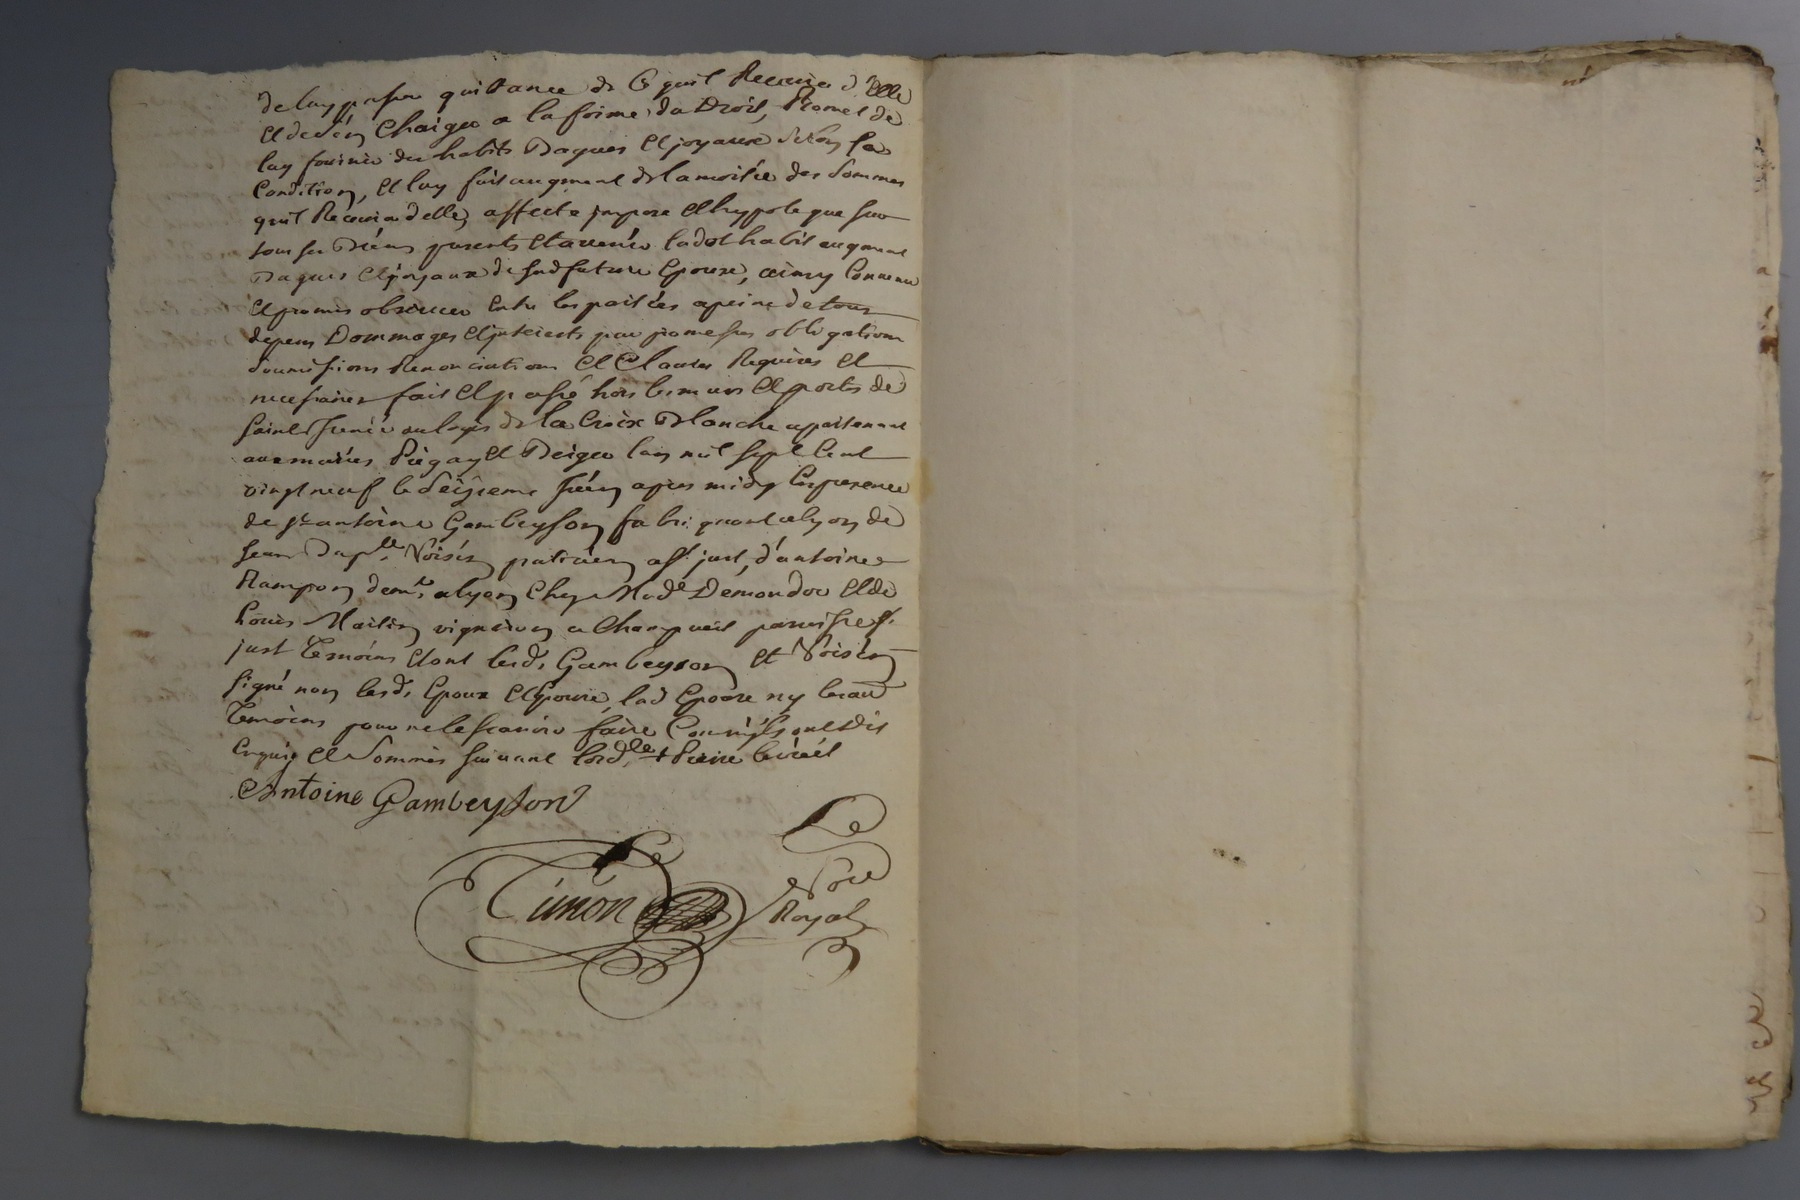 de luy passer quittance de ce quil Recevra d'Elle
et de s'en Charger a la forme du Droit, Promet de
luy fournir des habits Bagues et joyaux selon sa
Condition, et luy fait augment de la moitiée des Sommes
quil Recevra d'elle, affecte impose et hypoteque sur
tous ses Biens presents et avenir la dot habit augment
Bagues et joyaux de sad future Epouse, ainsy Convenu
et promis observer Entre les parties a peine de tous
depens Dommages et interests par promesses obligations
soumissions Renonciations et Clauses Requises et
necessaires fait et passé hors les murs et portes de
Saint Irenée au logis de la Croix Blanche apartenant
aux mariés Piegay et Berger lan mil sept Cent
vingt neuf le seizieme Juin apres midy En presence
de sr. antoine Gambeyson fabriquant a lyon de
Jean Bap.te Voisin praticien a st. just, d'antoine
Rampon dem.t a lyon Chez Mad.e Demondor et de
Louis Martin vigneron a Champvert parroisse st.
just Temoins et ont lesd. Gambeyson et Voisin
signé non lesd. Epoux et Epouse, lad Epouse ny les au
Temoins pour ne le scavoir faire Comm'ils ont dit
Enquis et Sommés suivant Lord.ce +
Antoine Gambeyson
Simon
Nore
Royal